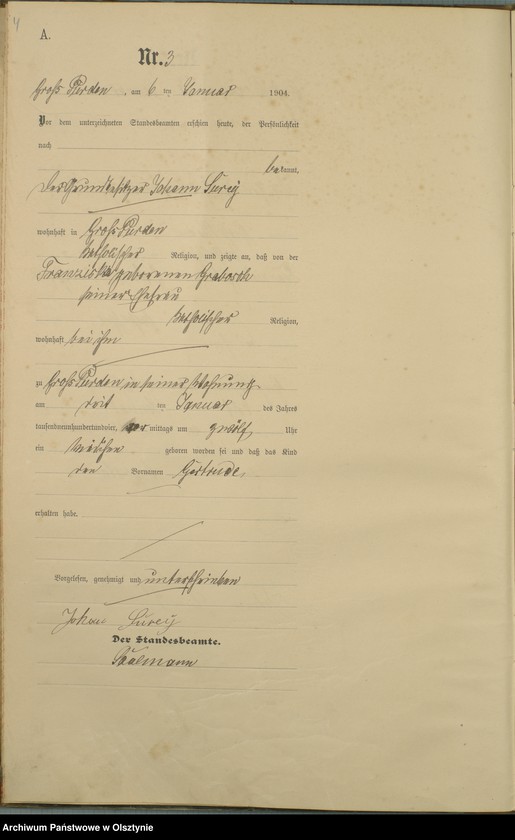 4
A.
Nr. 3
Groß Purden, am 6 ten Januar 1904.
Vor dem unterzeichneten Standesbeamten erschien heute, der Persönlichkeit
nach
bekannt,
der Grundbesitzer Johann
wohnhaft in Groß Purden
katholischer Religion, und zeigte an, daß von der
Franziska geborenen
seiner Ehefrau
katholischer Religion,
wohnhaft bei ihm
zu Groß Purden in seiner Wohnung
am ten Januar des Jahres
tausendneunhundertundvier, Vormittags um zwölf Uhr
ein Mädchen geboren worden sei und daß das Kind
den Vornamen Gertrude
erhalten habe.
Vorgelesen, genehmigt und unterschrieben
Johann
Der Standesbeamte.
Archiwum Państwowe w Olsztynie